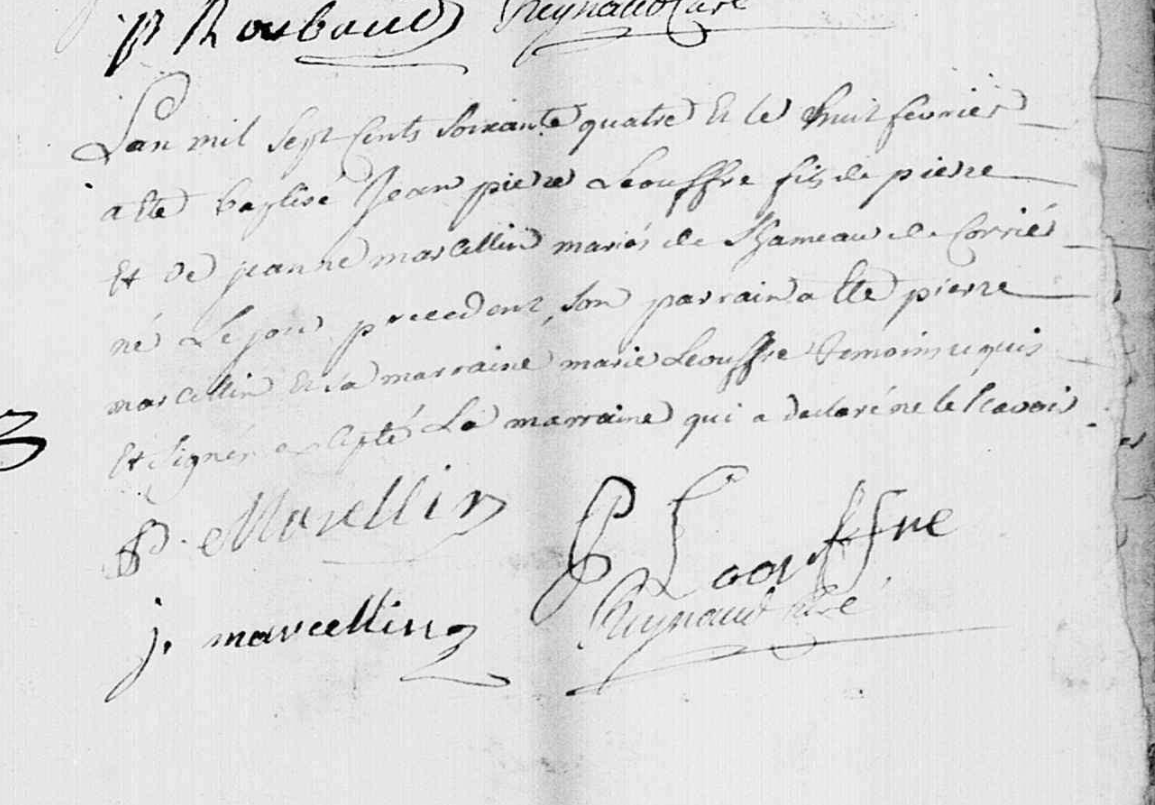 p Roubaud Reynaud Curé
Lan mil sept Cents soixante quatre Et le huit fevrier
a Eté baptisé Jean pierre Leouffre fils de pierre
Et de jeanne marcellin mariés de Lhameau de Corriés
né Le jour precedent, son parrain a Eté pierre
marcellin Et sa marraine marie Leouffre temoins requis
Et signés excepté La marraine qui a declaré ne le scavoir
P. Marellin P Leouffre
j. marcellin Reynaud curé